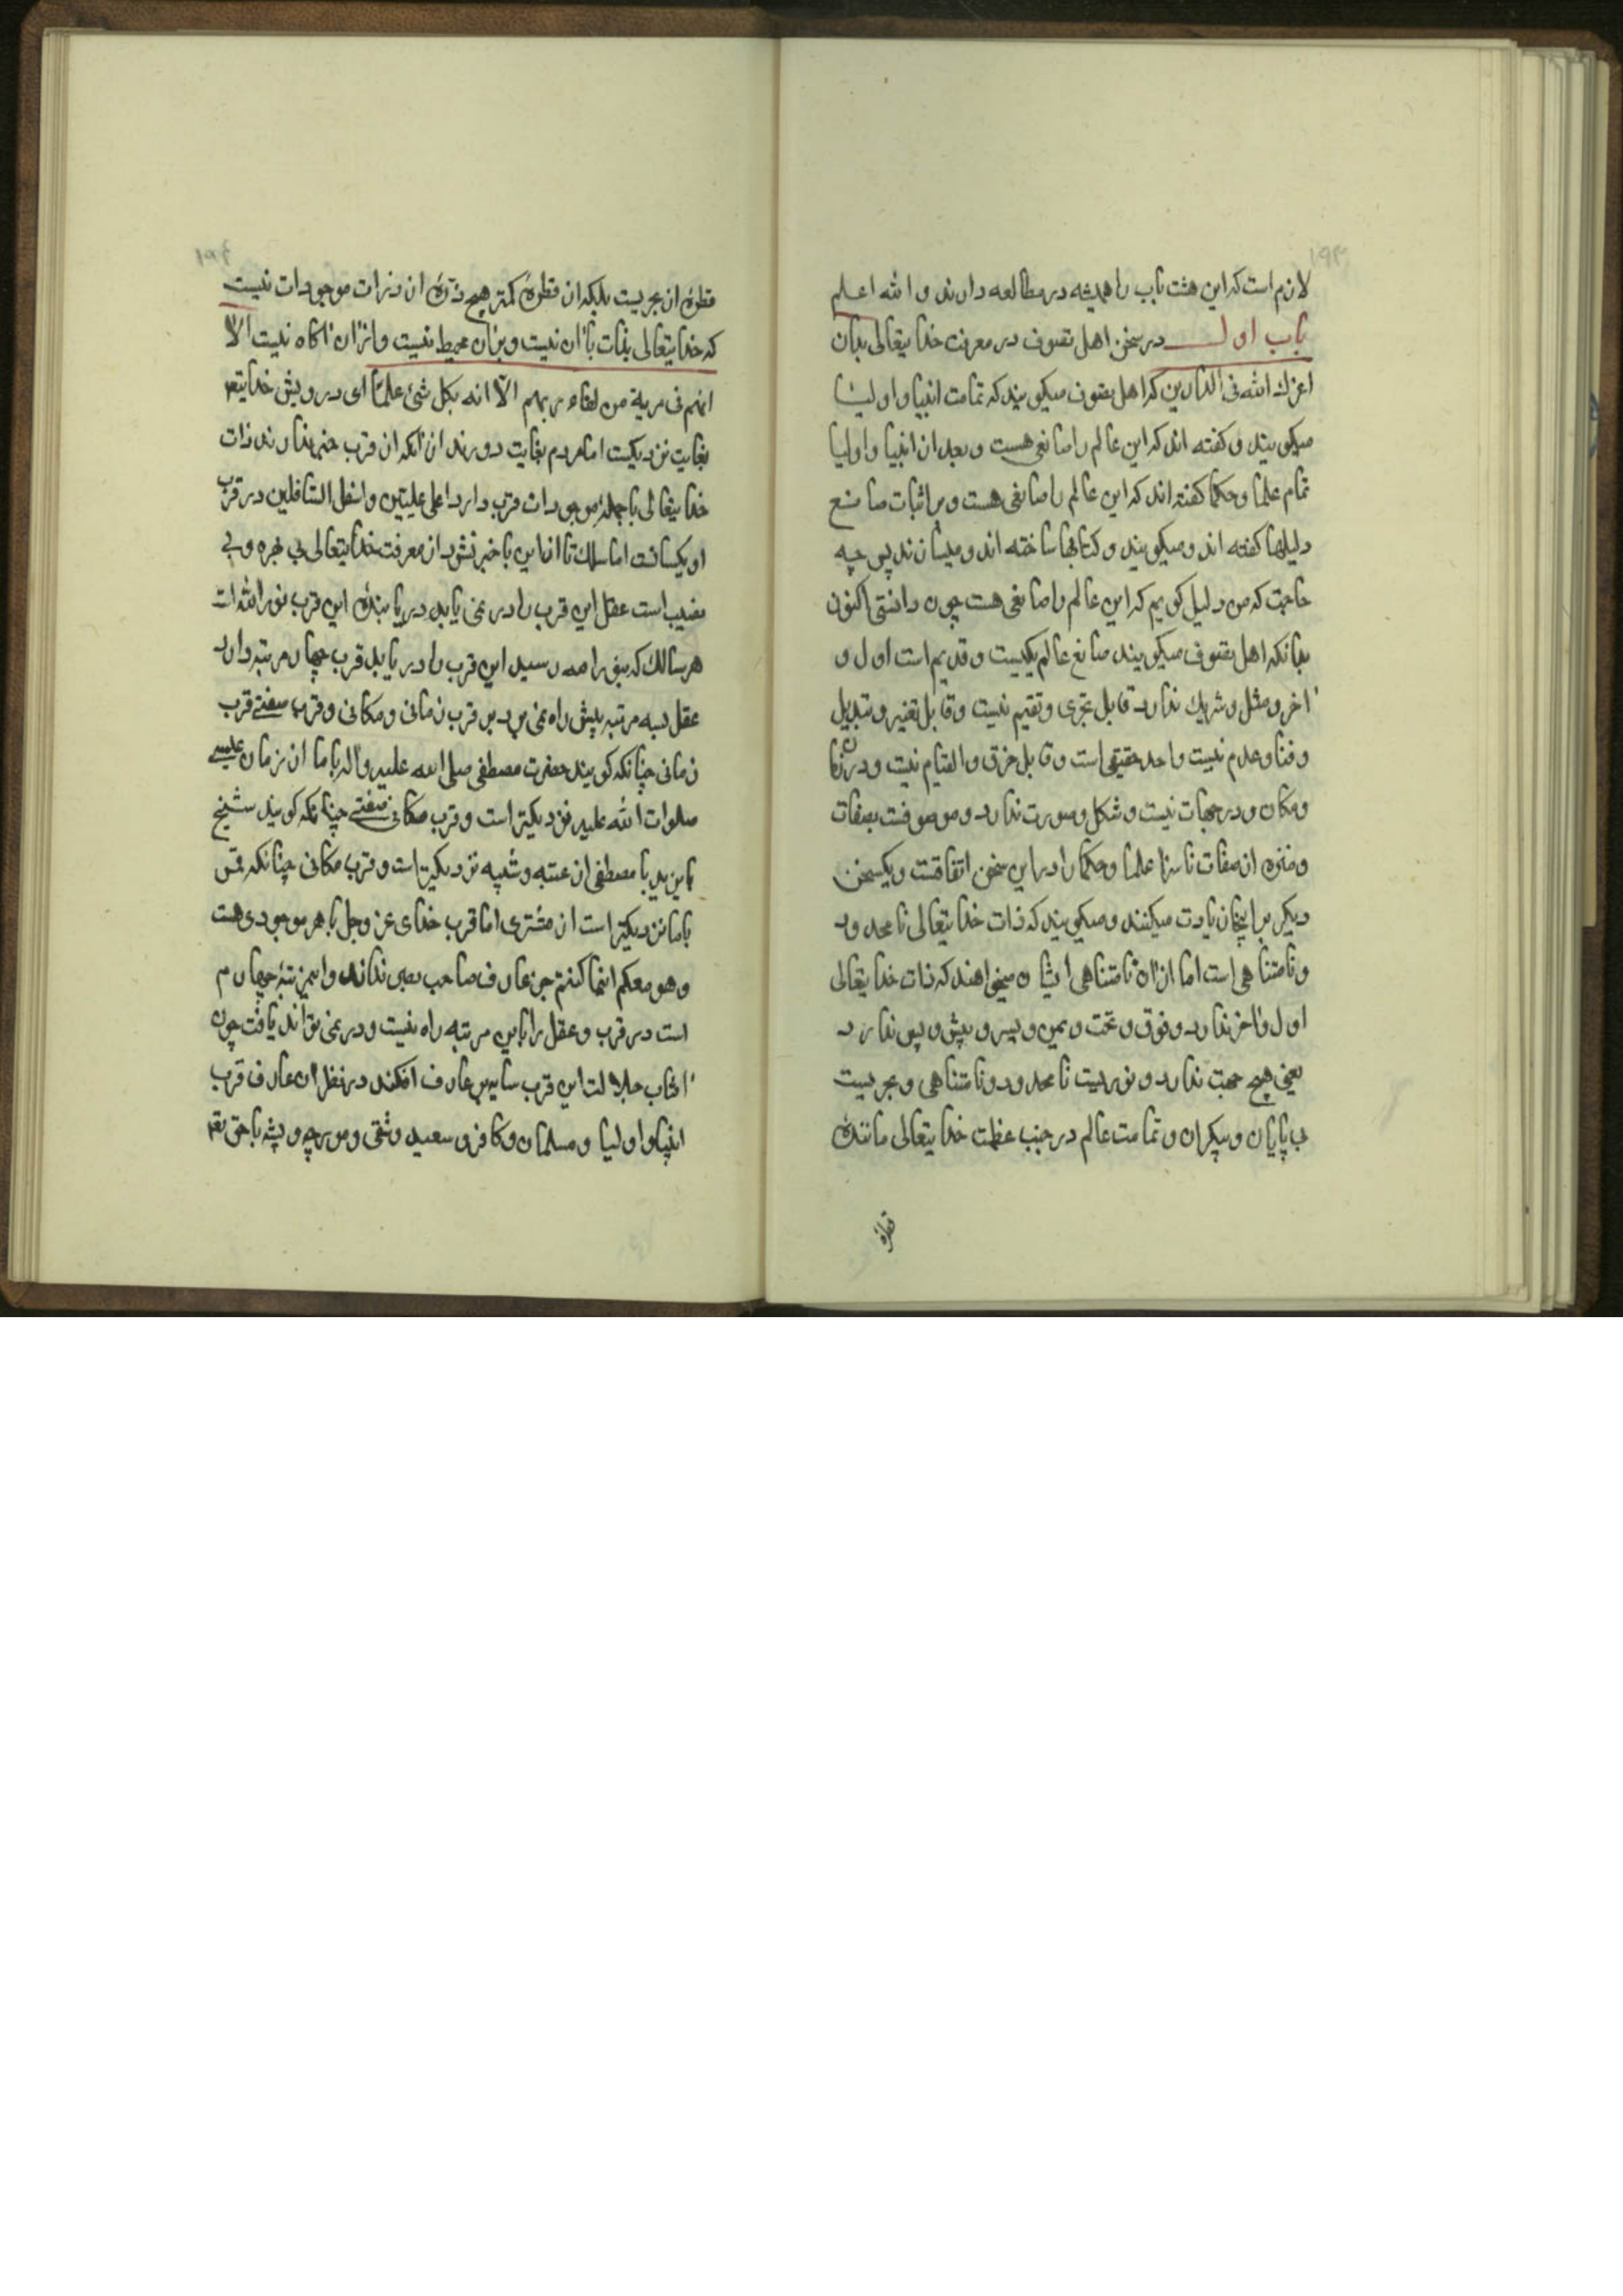 ۱۹۳
لازم است که این هشت باب را همیشه در مطالعه دارند و الله اعلم
باب اول در سخن اهل تصوف در معرفت خدایتعالی بدان
اعزك الله فی الدارین که اهل تصوف میکویند که تمامت انبیا و اولیا
میکویند و کفته اند که این عالم را صانعی هست و بعد از انبیا و اولیا
تمام علما و حکما کفته اند که این عالم را صانعی هست و بر اثبات صانع
دلیلها کفته اند و میکویند و کتابها ساخته اند و میسازند پس چه
حاجت که من دلیل کویم که این عالم را صانعی هست چون دانستی اکنون
بدانکه اهل تصوف میکویند صانع عالم یکیست و قدیم است اول و
آخر و مثل و شریك ندارد قابل تجزی و تقسیم نیست و قابل تغیر و تبدیل
و فنا و عدم نیست واحد حقیقی است و قابل خرق و التیام نیست و در زمان
و مکان و در جهات نیست و شکل و صورت ندارد و موصوفست بصفات
و منزه از صفات ناسزا علما و حکما را در این سخن اتفاقست و یکسخن
دیکر بر اینجا زیادت میکنند و میکویند که ذات خدایتعالی نامحدود
و نامتناهی است اما از آن نامتناهی ایشان میخواهند که ذات خدایتعالی
اول و آخر ندارد و فوق و تحت و یمین و یسر و پیش و پس ندارد
یعنی هیچ جهت ندارد و نوریست نامحدود و نامتناهی و بحریست
بی پایان و بیکران و تمامت عالم در جنب عظمت خدایتعالی مانند
قطرهٔ
قطرهٔ از بحریست بلکه از قطرهٔ کمتر هیچ ذرهٔ از ذرات موجودات نیست
که خدایتعالی بذات با آن نیست و بر آن محیط نیست و از آن آکاه نیست الا
انهم فی مریة من لقاء ربهم الا انه بکل شئ علما ای درویش خدایتع
بغایت نزدیکست اما مردم بغایت دورند از آنکه از قرب خبر ندارند ذات
خدایتعالی با جمله موجودات قرب دارد اعلی علیین و اسفل السافلین در قرب
او یکسانند اما سالك تا از این با خبر نشود از معرفت خدایتعالی بی بهره و بی
نصیب است عقل این قرب را در نمی یابد دریابندهٔ این قرب نور الله است
هر سالك که بنور الله رسید این قرب را دریابد قرب چهار مرتبه دارد
عقل بسه مرتبه بیش راه نمی برد بر قرب زمانی و مکانی و قرب صفتی قرب
زمانی چنانکه کویند حضرت مصطفی صلی الله علیه و اله با ما از زمان عیسی
صلوات الله علیه نزدیکتر است و قرب صفتی چنانکه کویند شیخ
بایزید با مصطفی از عتبه و شیبه نزدیکتر است و قرب مکانی چنانکه قمر
با ما نزدیکتر است از مشتری اما قرب خدای عز و جل با هر موجودی هست
و هو معکم اینما کنتم جز عارف صاحب بصر نداند و این مرتبهٔ چهارم
است در قرب و عقل را باین مرتبه راه نیست و در نمی تواند یافت چون
آفتاب جلالت این قرب سایه بر عارف افکند در نظر آن عارف قرب
انبیا و اولیا و مسلمان و کافر و سعید و شقی و مورچه و پشه با حق تع